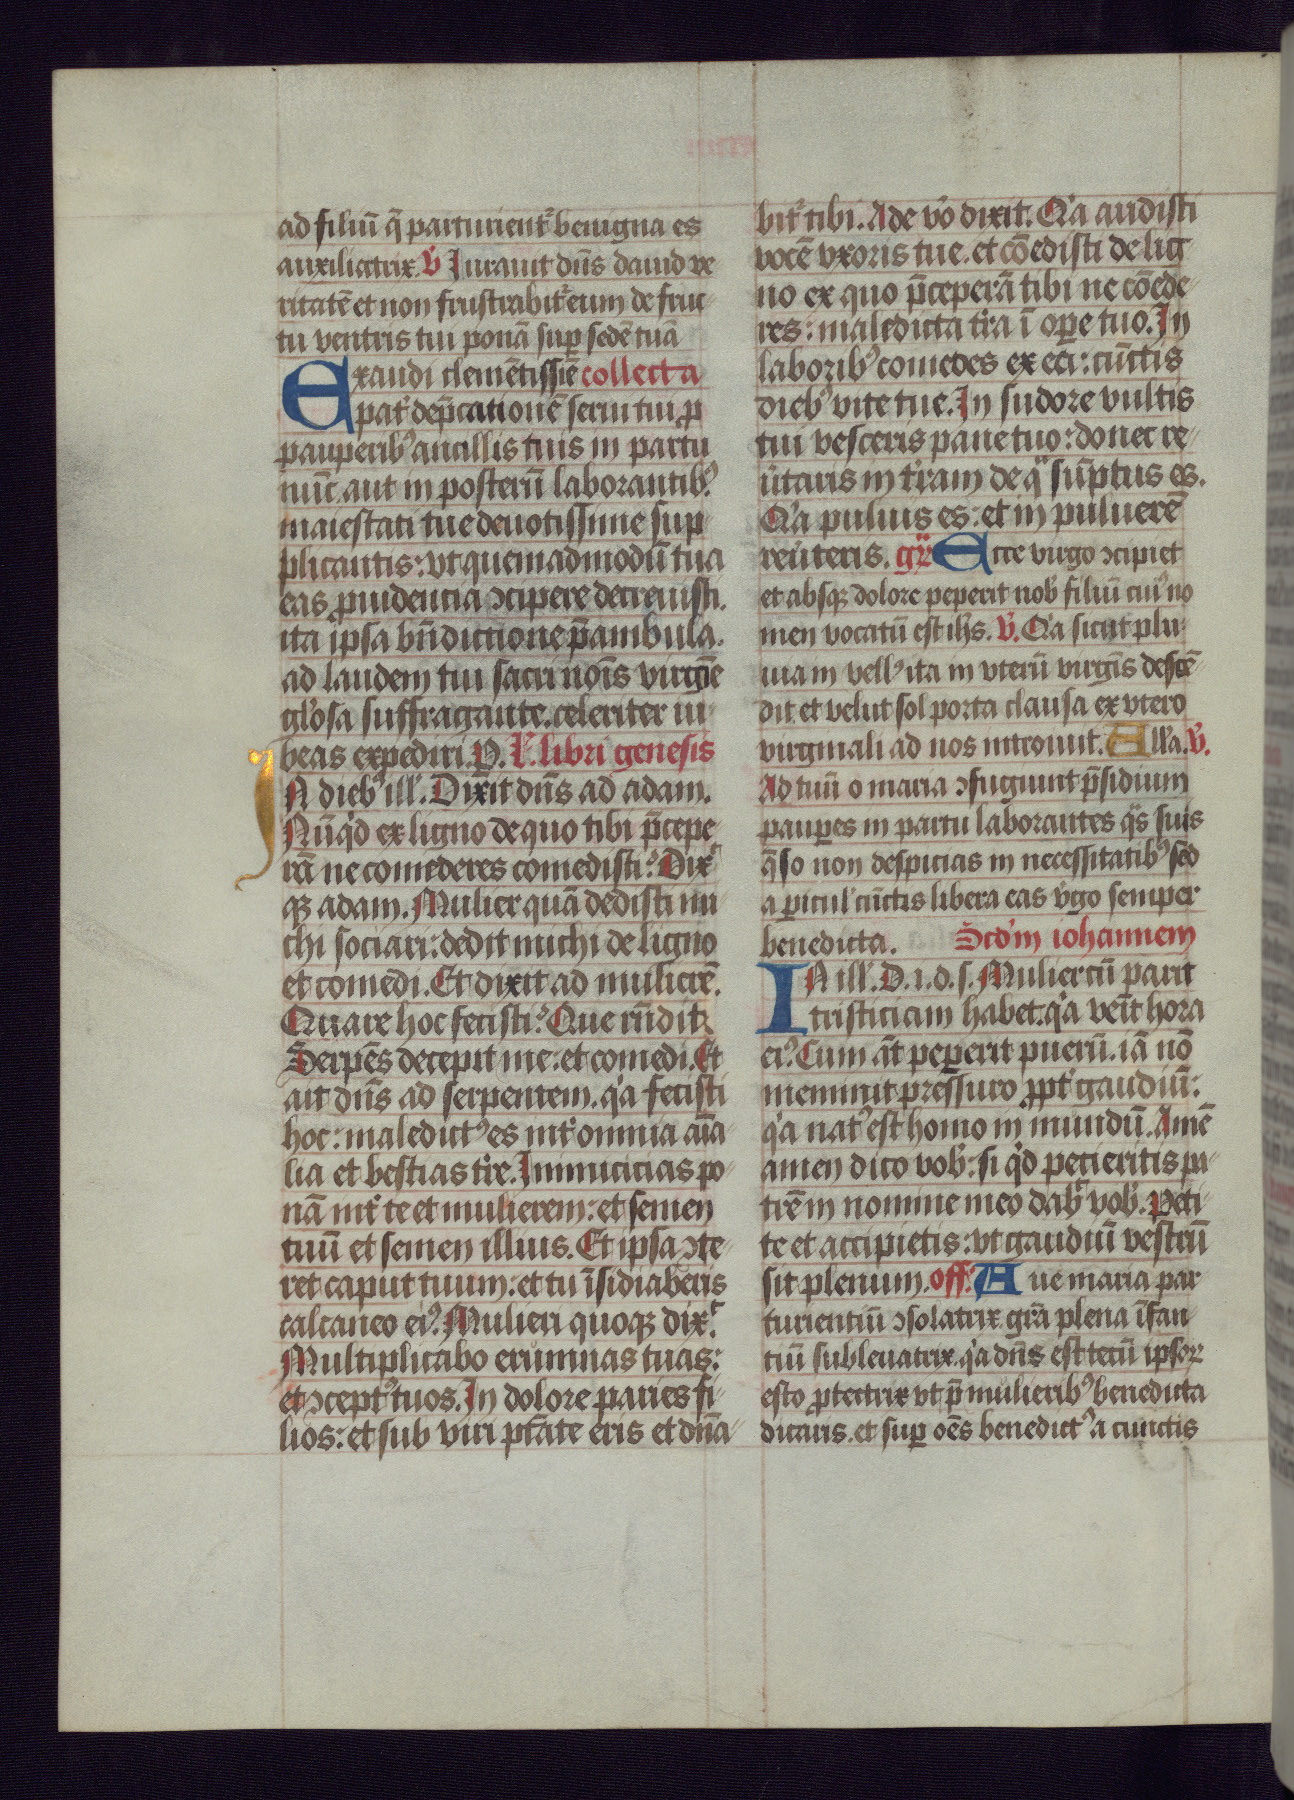 ad filiū q̄ parturient᷑ benigna es
auxiliatrix. v̓ Iurauit dn̄s dauid ve
ritatē et non frustrabit᷑ eum de fruc
tu ventris tui ponā sup̱ sedē tuā
Exaudi clemētissīe collecta
pat̓ dep̄cationē serui tui ꝓ
pauperibꝰ ancillis tuis in partu
nūc aut in posterū laborantibꝰ
maiestati tue deuotissime sup-
plicantis: vt quemadmodū tua
eas ꝓuidencia ↄcipere decreuisti.
ita ipsa bn̄dictione p̄ambula.
ad laudem tui sacri nois̄ virgīe
gl̓osa suffragante. celeriter iu-
beas expediri. P. L̓. libri genesis
IN diebꝰ ill̓. Dixit dn̄s ad adam.
Nūq̓d ex ligno de quo tibi p̄cepe-
rā ne comederes comedisti? Dix̓
qꝫ adam. Mulier quā dedisti mi
chi sociari: dedit michi de ligno
et comedi. Et dixit ad mulierē.
Quare hoc fecisti? Que rn̄dit
Serpēs decepit me: et comedi. Et
ait dn̄s ad serpentem. q̓a fecisti
hoc: maledictꝰ es int̓ omnia aīa-
lia et bestias tr̓e. Inimicicias po-
nā int̓ te et mulierem: et semen
tuū et semen illius. Et ipsa ↄte-
ret caput tuum: et tu īsidiaberis
calcaneo eiꝰ. Mulieri quoqꝫ dix̓.
Multiplicabo erumnas tuas:
et ↄceptꝰ tuos. In dolore paries fi-
lios: et sub viri ptāte eris et dn̄a-
bit᷑ tibi. Ade v̓o dixit. Q̓a audisti
vocē vxoris tue. et cōedisti de lig
no ex quo p̄ceperā tibi ne cōede-
res: maledicta tr̓a ī oꝑe tuo. In
laboribꝰ comedes ex ea: cūctis
diebꝰ vite tue. In sudore vultis
tui vesceris pane tuo: donec re-
u̓taris in tr̓am de qᵃ sūptus es.
Q̓a puluis es: et in puluerē
reu̓teris. gr̄ Ecce virgo ↄcipiet
et absqꝫ dolore peperit nob̓ filiū cuiꝰ no
men vocatū est ihs̄. v̓. Q̓a sicut plu-
uia in vellꝰ ita in vterū virgīs descē-
dit et velut sol porta clausa ex vtero
virginali ad nos introiuit. All̓a. v̓.
Ad tuū o maria ↄfugiunt p̄sidium
pauꝑes in partu laborantes q̓s suis
q̄so non despicias in necessitatibꝰ sed
a ꝑicul̓ cūctis libera eas v̓go semper
benedicta. Scd̓m iohannem
IN ill̓. D. i. d. s. Mulier cū parit
tristiciam habet. q̓a ven̄it hora
eiꝰ. Cum aūt peperit puerū. iā nō
meminit pressure ꝓpt̓ gaudiū:
q̓a natꝰ est homo in mundū. Amē
amen dico vob̓: si q̓d pecieritis pa-
trē in nomine meo dab̓ vob̓. Peti-
te et accipietis: vt gaudiū vestrū
sit plenum. off: Aue maria par
turientiū ↄsolatrix gr̄a plena īfan
tiū subleuatrix. q̓a dn̄s est tecū ipsoꝝ
esto ꝓtectrix vt p̄ mulieribꝰ benedicta
dicaris. et suꝑ oēs benedictꝰ a cunctis